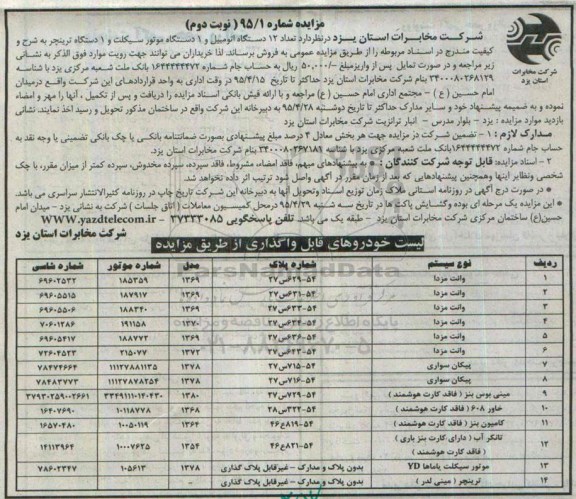 مزایده شماره ۹۵/۱ (نوبت دوم)
شرکت مخابرات استان یزد درنظردارد تعداد ۱۲ دستگاه اتومبیل و ۱ دستگاه موتور سیکلت و ۱ دستگاه ترینچر به شرح و
کیفیت مندرج در اسناد مربوطه را از طریق مزایده عمومی به فروش برساند. لذا خریداران می توانند جهت رویت موارد فوق الذکر به نشانی
زیر مراجعه و در صورت تمایل پس از واریزمبلغ ۵۰,۰۰۰/- ریال به حساب جام شماره ۱۶۴۴۴۴۴۴۷۲ بانک ملت شعبه مرکزی یزد با شناسه
۳۴۰۰۰۸۰۲۶۸۱۲۹ بنام شرکت مخابرات استان یزد حداکثر تا تاریخ ۹۵/۴/۱۵ در وقت اداری به واحد قراردادهای این شرکت واقع درمیدان
امام حسین (ع) - مجتمع اداری امام حسین (ع) مراجعه و با ارائه فیش بانکی اسناد مزایده را دریافت و پس از تکمیل ، آنها را مهر و امضاء
نموده و به ضمیمه پیشنهاد خود و سایر مدارک حداکثر تا تاریخ دوشنبه ۹۵/۴/۲۸ به دبیرخانه این شرکت واقع در ساختمان مذکور تحویل و رسید اخذ نمایند. نشانی
بازدید موارد مزایده : یزد - بلوار مدرس - انبار ترانزیت شرکت مخابرات استان یزد
مدارک لازم : ۱ - تضمین شرکت در مزایده جهت هر بخش معادل ۴ درصد مبلغ پیشنهادی بصورت ضمانتنامه بانکی یا چک بانکی تضمینی یا وجه نقد به
حساب جام شماره ۱۶۴۴۴۴۴۴۷۲بانک ملت شعبه مرکزی یزد با شناسه ۳۴۰۰۰۸۰۳۶۷۱۸۹ بنام شرکت مخابرات استان یزد.
۲ - اسناد مزایده: قابل توجه شرکت کنندگان : * به پیشنهادهای مبهم، فاقد امضاء، مشروط، فاقد سپرده، سپرده مخدوش، سپرده کمتر از میزان مقرر، با چک
شخصی ونظایر اینها وهمچنین پیشنهادهایی که بعد از زمان مقرر در آگهی واصل شود ترتیب اثر داده نخواهد شد.
* در صورت درج آگهی در روزنامه استانی ملاک زمان توزیع اسناد وتحویل آنها به دبیرخانه این شرکت تاریخ چاپ در روزنامه کثیرالانتشار سراسری می باشد.
* این مزایده یک مرحله ای بوده وگشایش پاکت ها در تاریخ سه شنبه ۹۵/۴/۲۹ درمحل کمیسیون معاملات ( اتاق جلسات ) شرکت به نشانی یزد - میدان امام
حسین(ع) ساختمان مرکزی شرکت مخابرات استان یزد - طبقه یک می باشد. تلفن پاسخگویی ۳۷۳۳۳۰۸۵ - WWW.yazdtelecom.ir
شرکت مخابرات استان یزد
شرکت مخابرات
استان یزد
لیست خودروهای قابل واگذاری از طریق مزایده
ردیف نوع سیستم شماره پلاک مدل شماره موتور شماره شاسی
۱ وانت مزدا ۵۴-۶۲۹س۲۷ ۱۳۶۹ ۱۸۵۳۵۹ ۶۹۶۰۲۵۳۲
۲ وانت مزدا ۵۴-۶۳۱س۲۷ ۱۳۶۹ ۱۸۷۹۱۷ ۶۹۶۰۵۵۱۵
۳ وانت مزدا ۵۴-۶۳۳س۲۷ ۱۳۶۹ ۱۸۸۳۴۰ ۶۹۶۰۵۵۰۶
۴ وانت مزدا ۵۴-۶۳۴س۲۷ ۱۳۷۰ ۱۹۱۱۵۸ ۷۰۶۰۱۲۸۶
۵ وانت مزدا ۵۴-۶۳۶س۲۷ ۱۳۶۹ ۱۸۸۷۷۲ ۶۹۶۰۵۴۱۷
۶ وانت مزدا ۵۴-۶۴۳س۲۷ ۱۳۷۲ ۲۱۵۰۷۷ ۷۲۶۰۴۵۲۳
۷ پیکان سواری ۵۴-۷۱۵س۲۷ ۱۳۷۸ ۱۱۱۲۷۸۸۱۱۳۵ ۷۸۴۷۴۶۶۴
۸ پیکان سواری ۵۴-۷۱۶س۲۷ ۱۳۷۸ ۱۱۱۲۷۸۷۸۲۵۴ ۷۸۴۸۳۷۷۳
۹ مینی بوس بنز ( فاقد کارت هوشمند ) ۵۴-۷۲۹س۲۷ ۱۳۸۰ ۳۳۴۹۱۱۱۰۱۴۰۴۳۰ ۳۷۹۳۰۲۵۹۰۰۲۶۶۱
۱۰ خاور ۶۰۸ ( فاقد کارت هوشمند ) ۵۴-۳۲۲س۲۸ ۱۳۶۸ ۱۰۱۱۸۷۷۸ ۱۶۴۰۷۶۹۰
۱۱ کامیون بنز ( فاقد کارت هوشمند ) ۵۴-۸۱۹ع۴۶ ۱۳۶۴ ۱۰۰۵۰۱۱۹ ۱۶۵۷۰۴۸۰
۱۲ تانکر آب ( دارای کارت بنز باری ) ( فاقد کارت هوشمند ) ۵۴-۸۲۱ع۴۶ ۱۳۵۴ ۱۰۰۰۷۶۲۵ ۱۴۱۱۳۹۶۴
۱۳ موتور سیکلت یاماها YD بدون پلاک و مدارک - غیرقابل پلاک گذاری ۱۳۷۸ ۱۰۵۶۱۳ ۷۸۶۰۲۳۴۷
۱۴ ترینچر ( مینی لدر ) بدون پلاک و مدارک - غیرقابل پلاک گذاری -